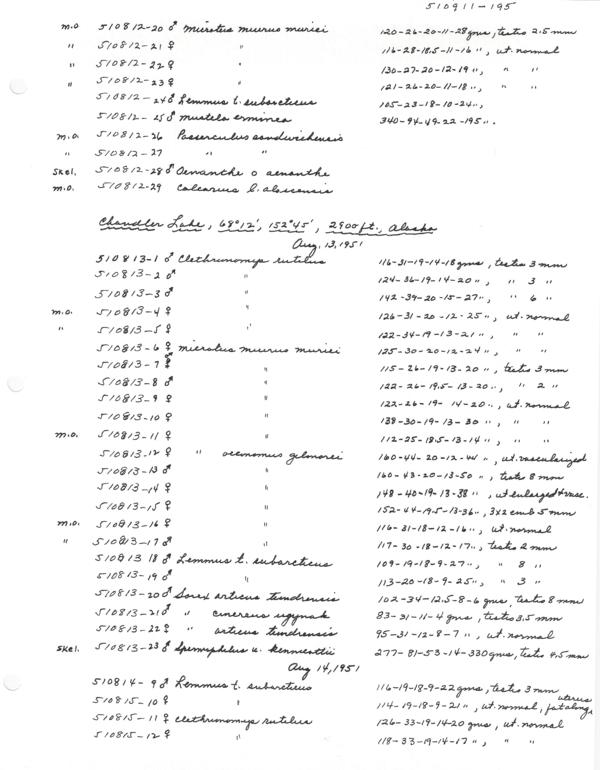 510911-195
m.o. 510812-20 ♂ Microtus miurus muriei 120-26-20-11-28 gms, testis 2.5 mm
" 510812-21 ♀ " 116-28-18.5-11-16 ", ut. normal
" 510812-22 ♀ " 130-27-20-12-19 ", " "
" 510812-23 ♀ " 121-26-20-11-18 ", " "
510812-24 ♂ Lemmus t. subarcticus 105-23-18-10-24 ",
510812-25 ♂ Mustela erminea 340-94-49-22-195 ".
m.o. 510812-26 Passerculus sandwichensis
" 510812-27 " "
Skel. 510812-28 ♂ Oenanthe o oenanthe
m.o. 510812-29 Calcarius l. alascensis
Chandler Lake, 68°12', 152°45', 2900 ft., Alaska
Aug. 13, 1951
510813-1 ♂ Clethrionomys rutilus 116-31-19-14-18 gms, testis 3 mm
510813-2 ♂ " 124-36-19-14-20 ", " 3 "
510813-3 ♂ " 142-39-20-15-27 ", " 6 "
m.o. 510813-4 ♀ " 126-31-20-12-25 ", ut. normal
" 510813-5 ♀ " 122-34-19-13-21 ", " "
510813-6 ♀ Microtus miurus muriei 125-30-20-12-24 ", " "
510813-7 ♂ " 115-26-19-13-20 ", testis 3 mm
510813-8 ♂ " 122-26-19.5-13-20 ", " 2 "
510813-9 ♀ " 122-26-19-14-20 ", ut. normal
510813-10 ♀ " 138-30-19-13-30 ", " "
m.o. 510813-11 ♀ " 112-25-18.5-13-14 ", " "
510813-12 ♀ " oeconomus gilmorei 160-44-20-12-44 ", ut. vascularized
510813-13 ♂ " 160-43-20-13-50 ", testis 8 mm
510813-14 ♀ " 148-40-19-13-38 ", ut enlarged & vasc.
510813-15 ♀ " 152-44-19.5-13-36 ", 3x2 emb 5 mm
m.o. 510813-16 ♀ " 116-31-18-12-16 ", ut. normal
" 510813-17 ♂ " 117-30-18-12-17 ", testis 2 mm
510813 18 ♂ Lemmus t. subarcticus 109-19-18-9-27 ", " 8 "
510813-19 ♂ " 113-20-18-9-25 ", " 3 "
510813-20 ♂ Sorex arcticus tundrensis 102-34-12.5-8-6 gms, testis 8 mm
510813-21 ♂ " cinereus ugyunak 83-31-11-4 gms, testis 3.5 mm
510813-22 ♀ " arcticus tundrensis 95-31-12-8-7 ", ut. normal
Skel. 510813-23 ♂ Spermophilus u. kennicottii 277-81-53-14-330 gms, testis 4.5 mm
Aug 14, 1951
510814-9 ♂ Lemmus t. subarcticus 116-19-18-9-22 gms, testis 3 mm
510815-10 ♀ " 114-19-18-9-21 ", ut. normal, fat along uterus
510815-11 ♀ Clethrionomys rutilus 126-33-19-14-20 gms, ut. normal
510815-12 ♀ " 118-33-19-14-17 ", " "